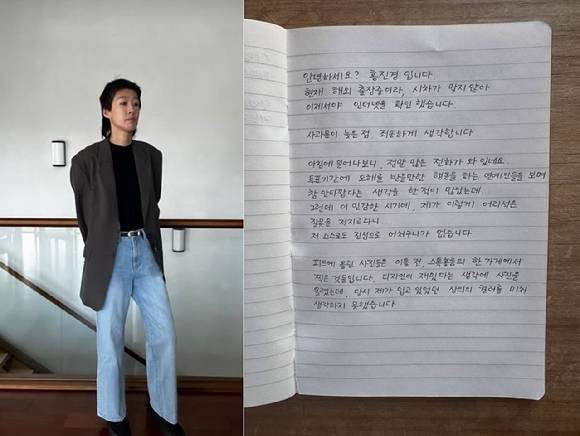 안녕하세요? 홍진경 입니다.
현재 해외 출장중이라, 시차가 맞지않아
이제서야 인터넷을 확인했습니다.
사과문이 늦은점 죄송하게 생각합니다
아침에 일어나보니, 정말 많은 전화가 와 있네요.
투표기간에 오해를 받을만한 행동을 하는 연예인들을 보며
참 안타깝다는 생각을 한 적이 있었는데
그런데 이 민감한 시기에, 제가 이렇게 어리석은
잘못을 저지르다니
저 스스로도 진심으로 어처구니가 없습니다
피드에 올린 사진들은 이틀 전, 스톡홀름의 한 가게에서
찍은 것들입니다. 디자인이 재밌다는 생각에 사진을
올렸는데, 당시 제가 입고 있었던 상의의 컬러를 미처
생각하지 못했습니다